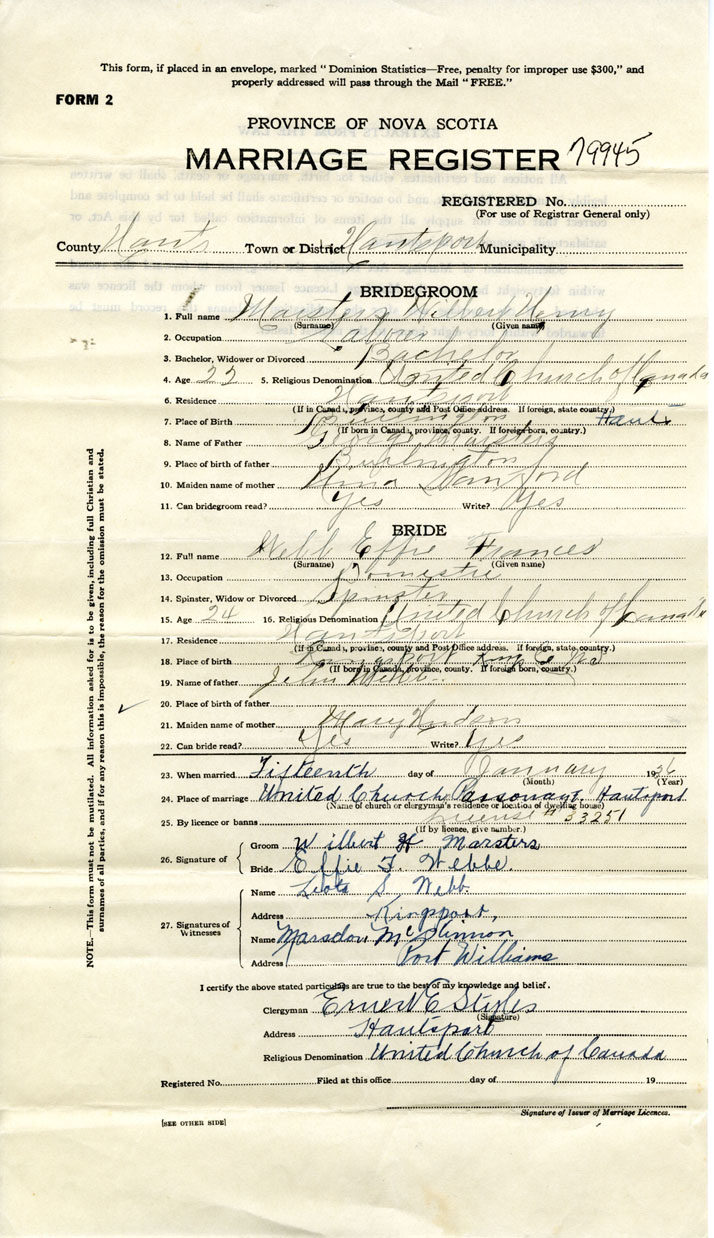 This form, if placed in an envelope, marked " Dominion Statistics—Free, penalty for improper use $300," and
properly addressed will pass through the Mail " FREE."
FORM 2
PROVINCE OF NOVA SCOTIA
MARRIAGE REGISTER 79945
REGISTERED No.
(For use of Registrar General only)
County Hants Town or District Hantsport Municipality
BRIDEGROOM
1. Full name Marsters Wilbert Henry
(Surname) (Given name)
2. Occupation Labourer
3. Bachelor, Widower or Divorced Bachelor
4. Age 22 5. Religious Denomination United Church of Canada
6. Residence Hantsport
(If in Canada, province, county and Post Office address. If foreign, state country.)
7. Place of Birth Burlington Hants
(If born in Canada, province, county. If foreign born, country.)
8. Name of Father George Marsters
9. Place of birth of father Burlington
10. Maiden name of mother Sanford
11. Can bridegroom read? Yes Write? Yes
BRIDE
12. Full name Webb Effie Frances
(Surname) (Given name)
13. Occupation Domestic
14. Spinster, Widow or Divorced Spinster
15. Age 24 16. Religious Denomination United Church of Canada
17. Residence Hantsport
(If in Canada, province, county and Post Office address. If foreign, state country.)
18. Place of birth Kings Co
(If born in Canada, province, county. If foreign born, country.)
19. Name of father John Webb
20. Place of birth of father
21. Maiden name of mother Mary Hudson
22. Can bride read? Yes Write? Yes
23. When married Fifteenth day of January 1936
(Month) (Year)
24. Place of marriage United Church Parsonage. Hantsport
(Name of church or clergyman's residence or location of dwelling house)
25. By licence or banns License # 33251
(If by licence, give number.)
26. Signature of
Groom Wilbert H Marsters
Bride Effie F. Webbe.
27. Signatures of Witnesses
Name S. Webb.
Address Kingsport,
Name Marsdon
Address Port Williams
I certify the above stated particulars are true to the best of my knowledge and belief.
Clergyman Ernest E Styles
(Signature)
Address Hantsport
Religious Denomination United Church of Canada
Registered No. Filed at this office day of 19
Signature of Issuer of Marriage Licences.
[SEE OTHER SIDE]
NOTE.—This form must not be mutilated. All information asked for is to be given, including full Christian and
surnames of all parties, and if for any reason this is impossible, the reason for the omission must be stated.